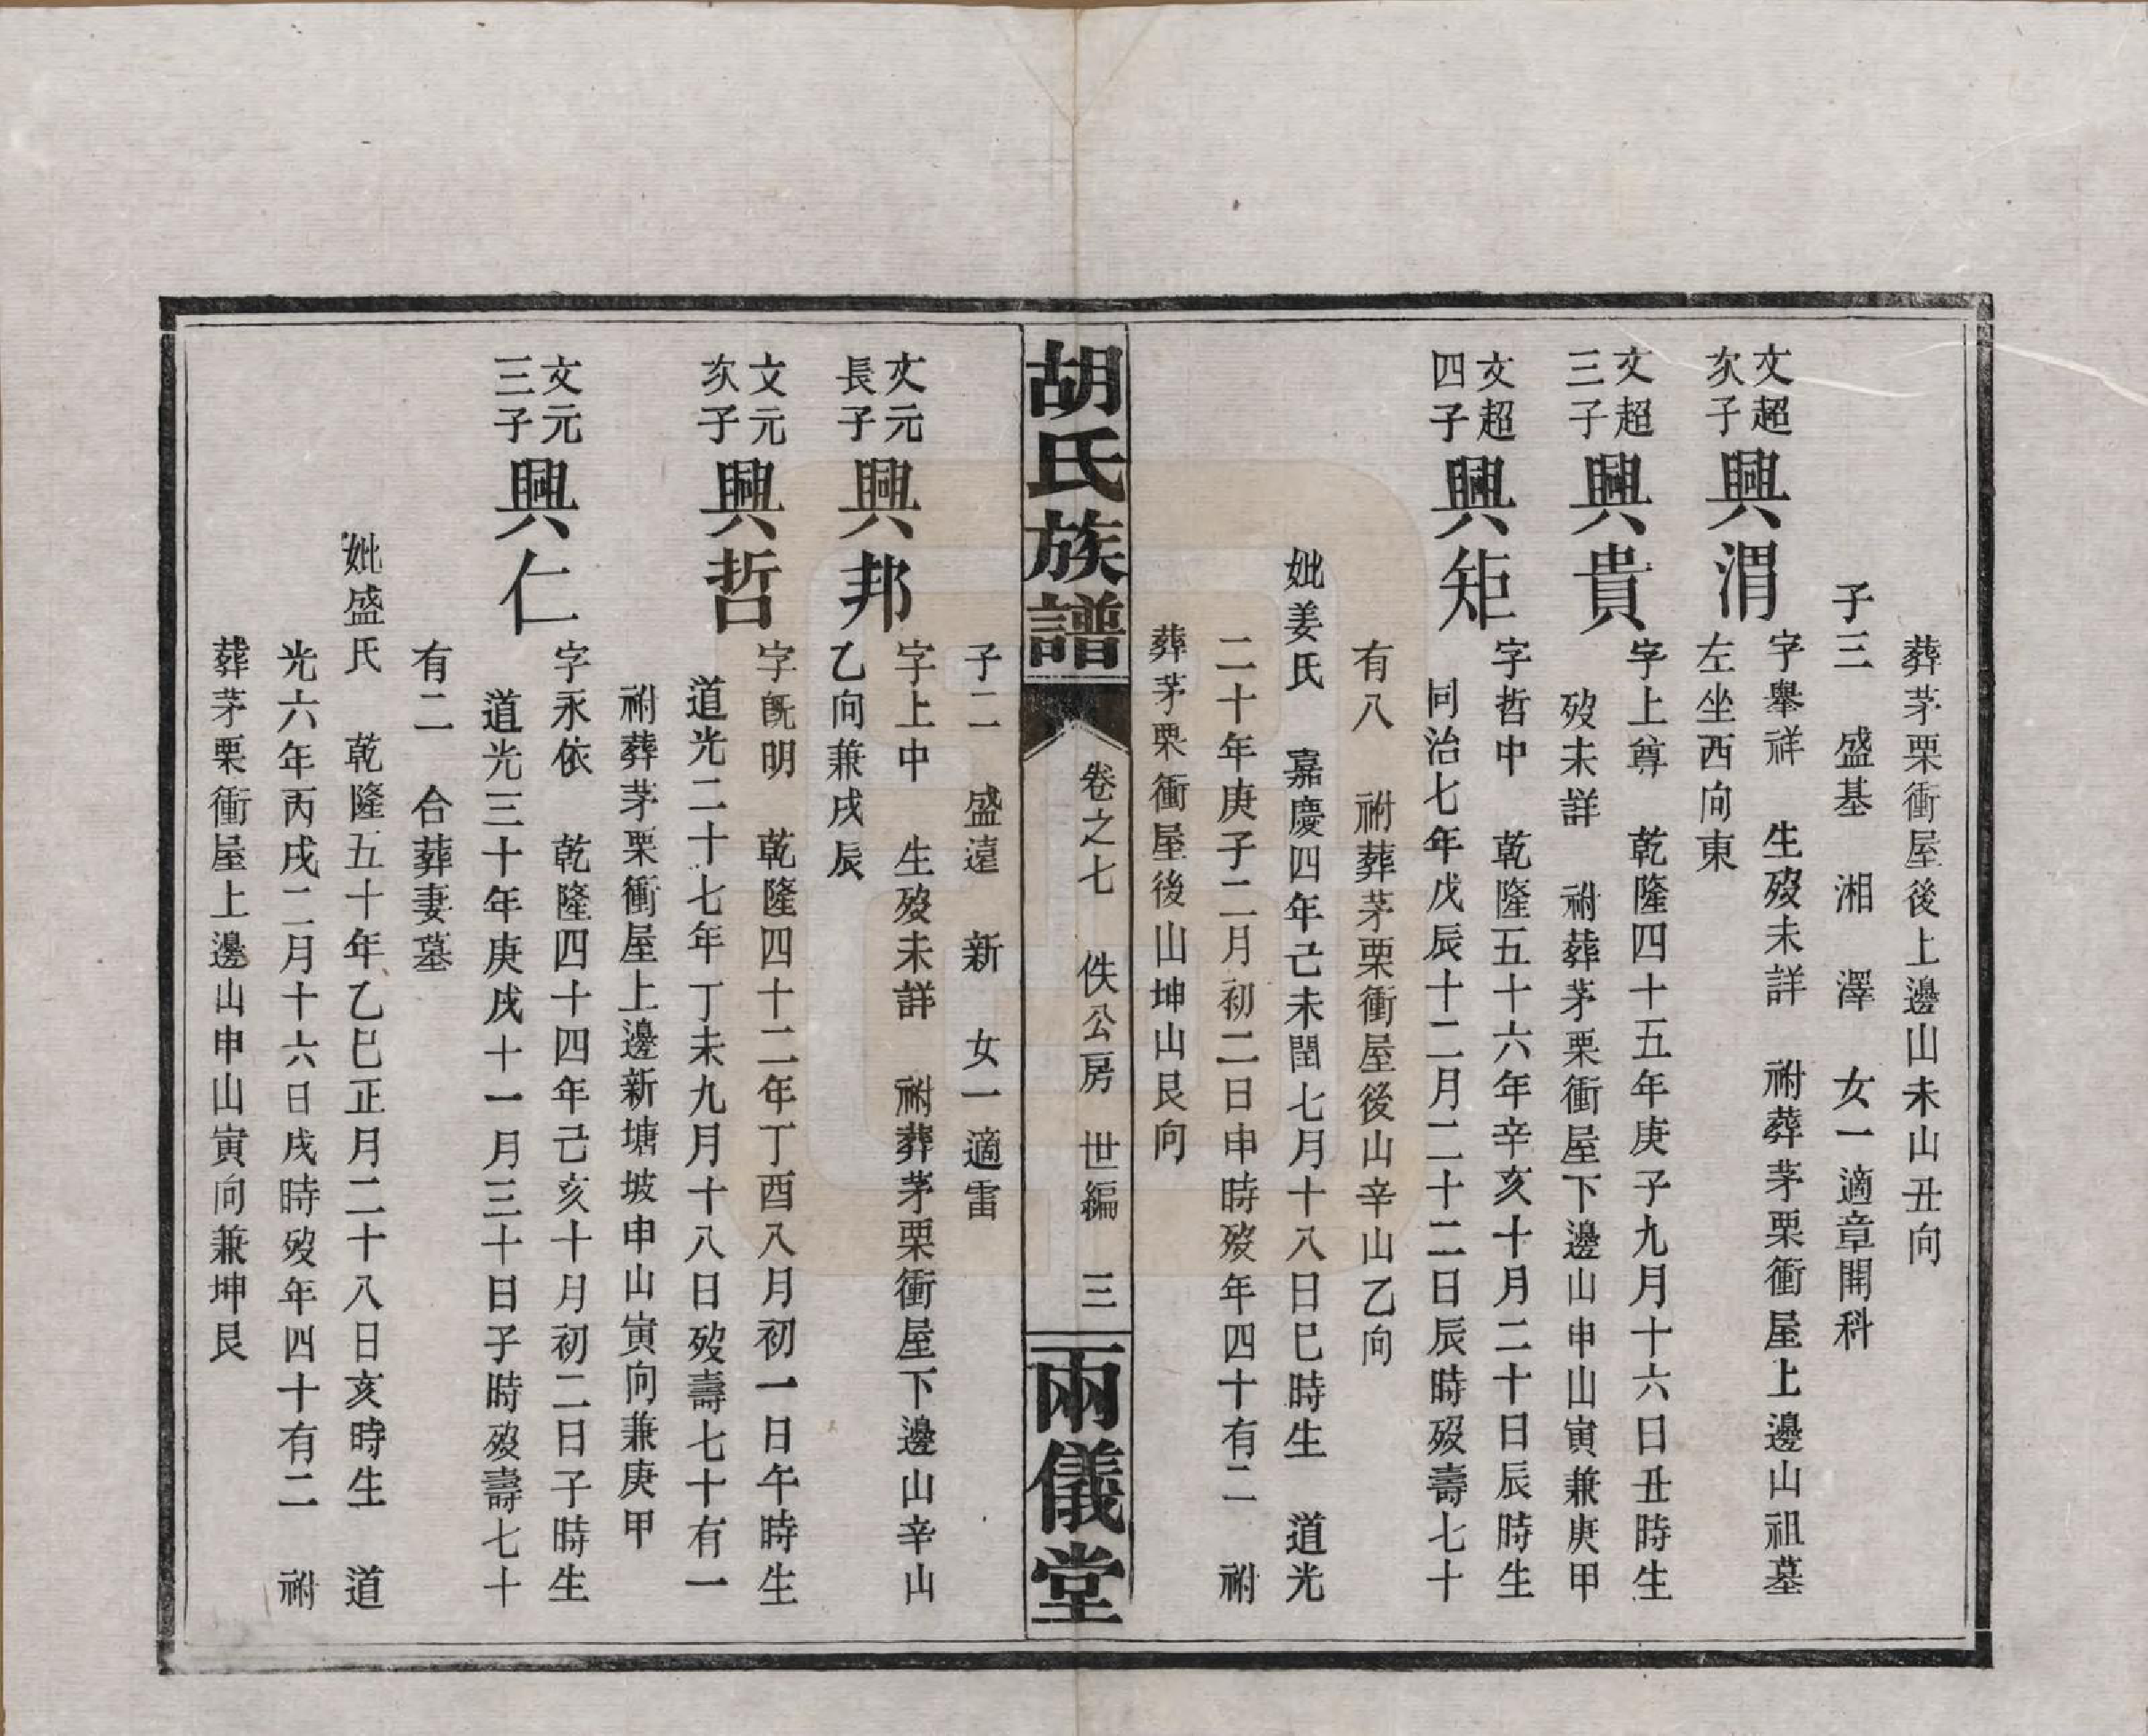 葬茅栗衝屋後上邊山未山丑向
子三　盛基　湘　澤　女一適章開科
文超次子興渭　字舉祥　生歿未詳　祔葬茅栗衝屋上邊山祖墓
左坐西向東
文超三子興貴　字上尊　乾隆四十五年庚子九月十六日丑時生
歿未詳　祔葬茅栗衝屋下邊山申山寅兼庚甲
文超四子興矩　字哲中　乾隆五十六年辛亥十月二十日辰時生
同治七年戊辰十二月二十二日辰時歿壽七十
有八　祔葬茅栗衝屋後山辛山乙向
妣姜氏　嘉慶四年己未閏七月十八日巳時生　道光
二十年庚子二月初二日申時歿年四十有二　祔
葬茅栗衝屋後山坤山艮向
胡氏族譜　卷之七　佚公房　世編　三　兩儀堂
子二　盛遠　新　女一適雷
文元長子興邦　字上中　生歿未詳　祔葬茅栗衝屋下邊山辛山
乙向兼戌辰
文元次子興哲　字旣明　乾隆四十二年丁酉八月初一日午時生
道光二十七年丁未九月十八日歿壽七十有一
祔葬茅栗衝屋上邊新塘坡申山寅向兼庚甲
文元三子興仁　字永依　乾隆四十四年己亥十月初二日子時生
道光三十年庚戌十一月三十日子時歿壽七十
有二　合葬妻墓
妣盛氏　乾隆五十年乙巳正月二十八日亥時生　道
光六年丙戌二月十六日戌時歿年四十有二　祔
葬茅栗衝屋上邊山申山寅向兼坤艮